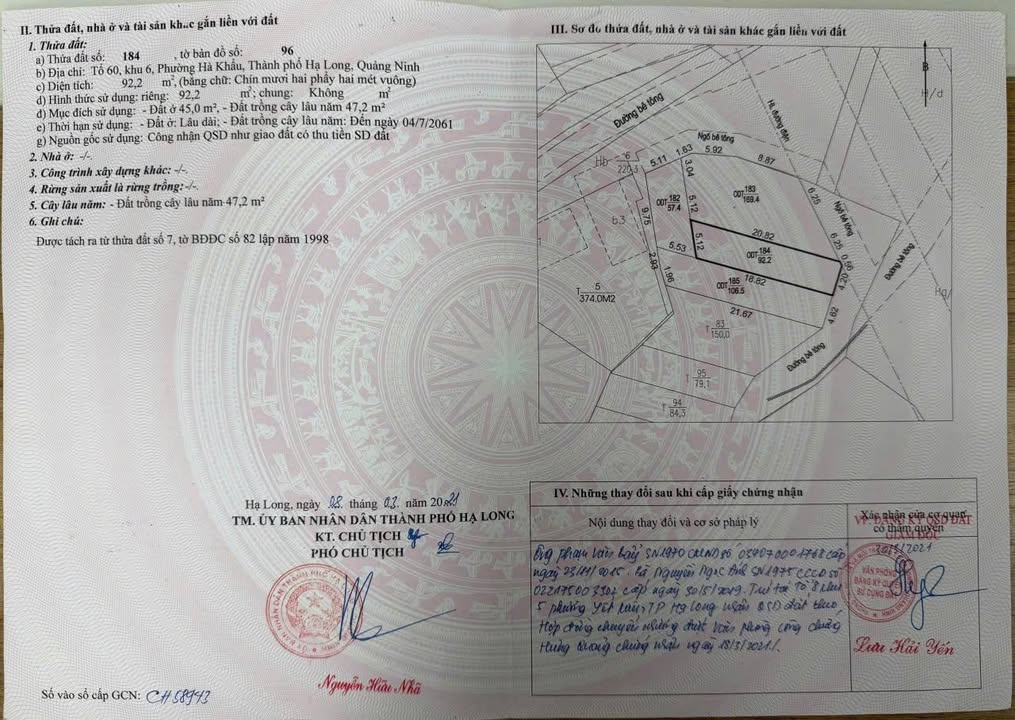 II. Thửa đất, nhà ở và tài sản khác gắn liền với đất
1. Thửa đất:
a) Thửa đất số: 184 , tờ bản đồ số: 96
b) Địa chỉ: Tổ 60, khu 6, Phường Hà Khẩu, Thành phố Hạ Long, Quảng Ninh
c) Diện tích: 92,2 m², (bằng chữ: Chín mươi hai phẩy hai mét vuông)
d) Hình thức sử dụng: riêng: 92,2 m²; chung: Không m²
đ) Mục đích sử dụng: - Đất ở 45,0 m², - Đất trồng cây lâu năm 47,2 m²
e) Thời hạn sử dụng: - Đất ở: Lâu dài; - Đất trồng cây lâu năm: Đến ngày 04/7/2061
g) Nguồn gốc sử dụng: Công nhận QSD như giao đất có thu tiền SD đất
2. Nhà ở: -/-.
3. Công trình xây dựng khác: -/-.
4. Rừng sản xuất là rừng trồng:-/-.
5. Cây lâu năm: - Đất trồng cây lâu năm 47,2 m²
6. Ghi chú:
Được tách ra từ thửa đất số 7, tờ BĐĐC số 82 lập năm 1998
Hạ Long, ngày 08 tháng 03 năm 2021
TM. ỦY BAN NHÂN DÂN THÀNH PHỐ HẠ LONG
KT. CHỦ TỊCH
PHÓ CHỦ TỊCH
Nguyễn Hữu Nhã
Số vào sổ cấp GCN: CH58943
III. Sơ đồ thửa đất, nhà ở và tài sản khác gắn liền với đất
B
H/d
Đường bê tông
HL đường điện
Ngõ bê tông
Hb 6
220.3
5.11
1.63
5.92
8.87
3.04
ODT 182
57.4
5.12
ODT 183
169.4
6.25
Ngõ bê tông
b3
9.75
20.82
6.25
0.56
Đường bê tông
5.53
5.12
ODT 184
92.2
4.20
2.93
1.96
18.82
ODT 185
106.5
Hg/
T 5
374.0M2
21.67
4.62
T 83
150,0
Đường bê tông
T 95
79,1
T 94
84,3
IV. Những thay đổi sau khi cấp giấy chứng nhận
Nội dung thay đổi và cơ sở pháp lý
Xác nhận của cơ quan
có thẩm quyền
VP. ĐĂNG KÝ QSD ĐẤT
GIÁM ĐỐC
Ông Phạm Văn Bảy SN1970 CMND số 037070001768 cấp
ngày 23/11/2015. Bà Nguyễn Ngọc SN1975 CCCD số
022175003302 cấp ngày 30/5/2019. Trú tại Tổ 8 khu
5 phường TP Hạ Long nhận QSD đất theo
Hợp đồng chuyển nhượng được Văn phòng công chứng
chứng nhận ngày 18/3/2021/.
VĂN PHÒNG
ĐĂNG KÝ QUYỀN
SỬ DỤNG ĐẤT
Lưu Hải Yến